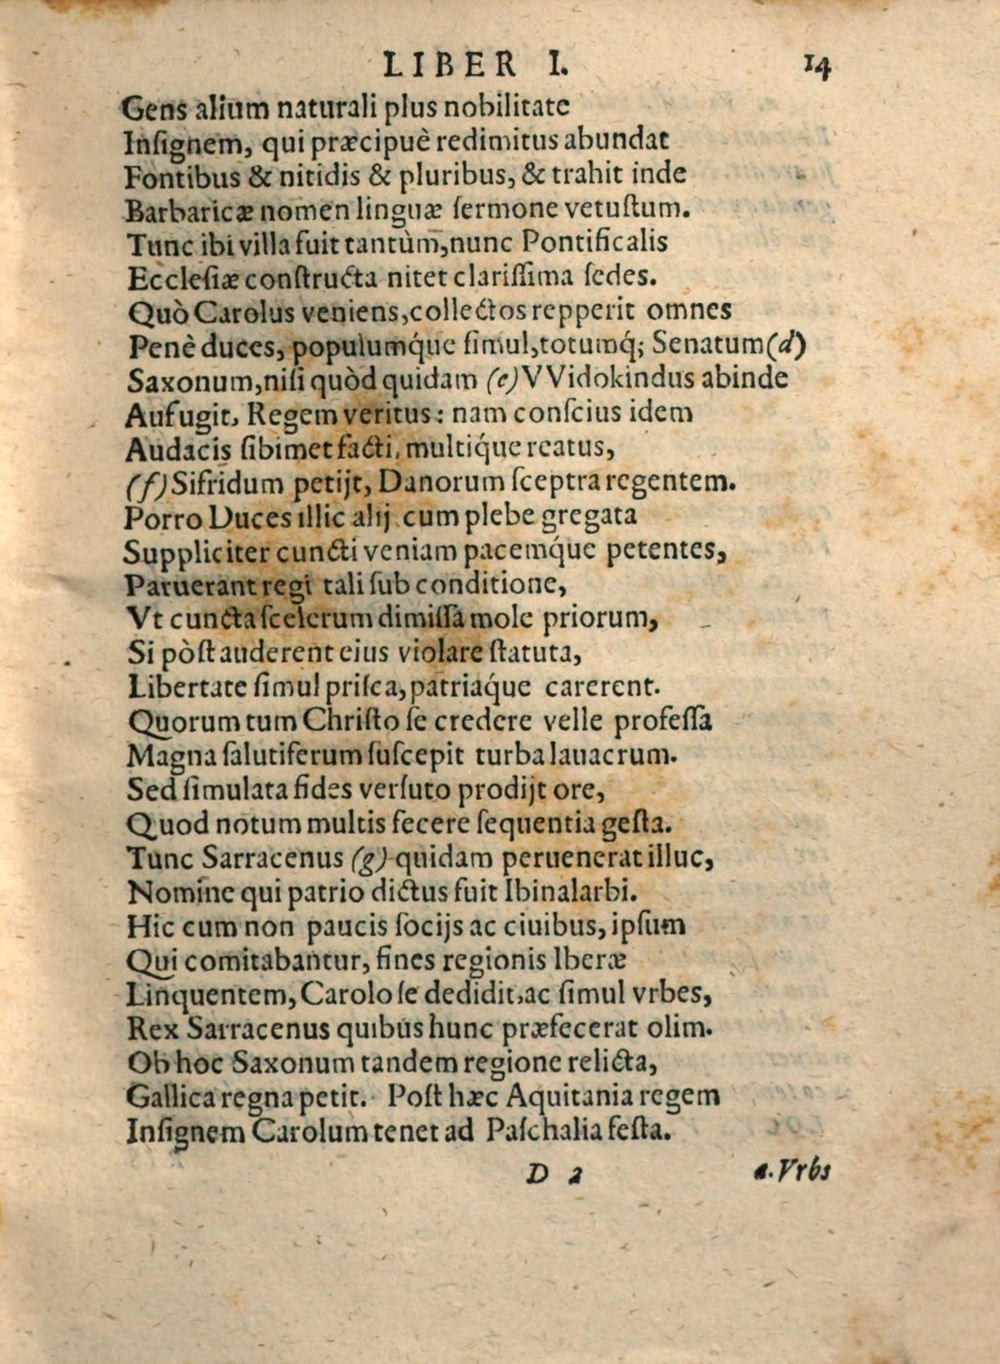 LIBER I. 14
Gens alium naturali plus nobilitate
Inſignem, qui præcipuè redimitus abundat
Fontibus & nitidis & pluribus, & trahit inde
Barbaricæ nomen linguæ ſermone vetuſtum.
Tunc ibi villa fuit tantùm, nunc Pontificalis
Eccleſiæ conſtructa nitet clariſſima ſedes.
Quò Carolus veniens, collectos repperit omnes
Penè duces, populumq́ue ſimul, totumq́; Senatum (d)
Saxonum, niſi quòd quidam (e) VVidokindus abinde
Aufugit, Regem veritus: nam conſcius idem
Audacis ſibimet facti, multiq́ue reatus,
(f) Sifridum petijt, Danorum ſceptra regentem.
Porro Duces illic alij cum plebe gregata
Suppliciter cuncti veniam pacemq́ue petentes,
Paruerant regi tali ſub conditione,
Vt cuncta ſcelerum dimiſſa mole priorum,
Si pòſt auderent eius violare ſtatuta,
Libertate ſimul priſca, patriaq́ue carerent.
Quorum tum Chriſto ſe credere velle profeſſa
Magna ſalutiferum ſuſcepit turba lauacrum.
Sed ſimulata fides verſuto prodijt ore,
Quod notum multis fecere ſequentia geſta.
Tunc Sarracenus (g) quidam peruenerat illuc,
Nomine qui patrio dictus fuit Ibinalarbi.
Hic cum non paucis ſocijs ac ciuibus, ipſum
Qui comitabantur, fines regionis Iberæ
Linquentem, Carolo ſe dedidit, ac ſimul vrbes,
Rex Sarracenus quibus hunc præfecerat olim.
Ob hoc Saxonum tandem regione relicta,
Gallica regna petit. Poſt hæc Aquitania regem
Inſignem Carolum tenet ad Paſchalia feſta.
D 2 a. Vrbs